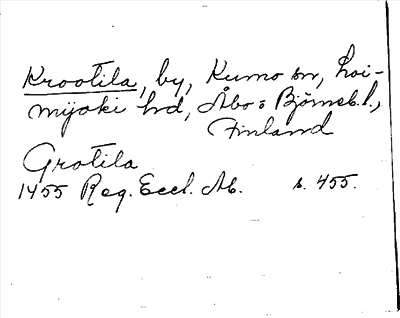 Krootila, by, Kumo sn, Loi-
mijoki hd, Åbo o Björneb. l.,
Finland
Grotila
1455 Reg. Eccl. Ab. s. 455.